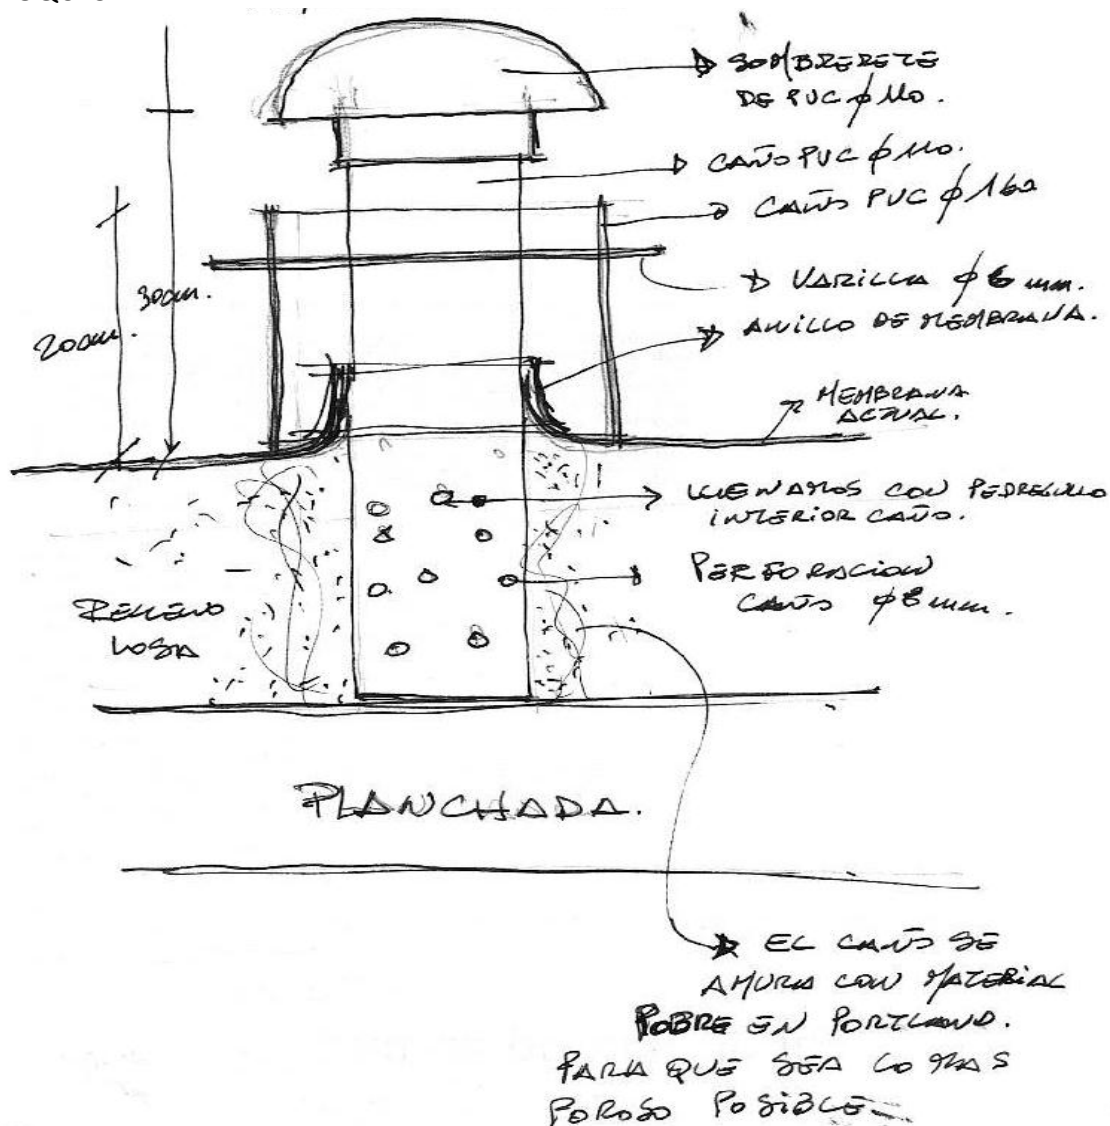 SOMBRERETE
DE PVC ϕ 110.
CAÑO PVC ϕ 110.
CAÑO PVC ϕ 160
VARILLA ϕ 6 mm.
ANILLO DE MEMBRANA.
MEMBRANA
ACTUAL.
30cm.
20cm.
LLENAMOS CON PEDREGULLO
INTERIOR CAÑO.
PERFORACION
CAÑO ϕ 8 mm.
RELLENO
LOSA
PLANCHADA.
EL CAÑO SE
AMURA CON MATERIAL
POBRE EN PORTLAND.
PARA QUE SEA LO MAS
POROSO POSIBLE